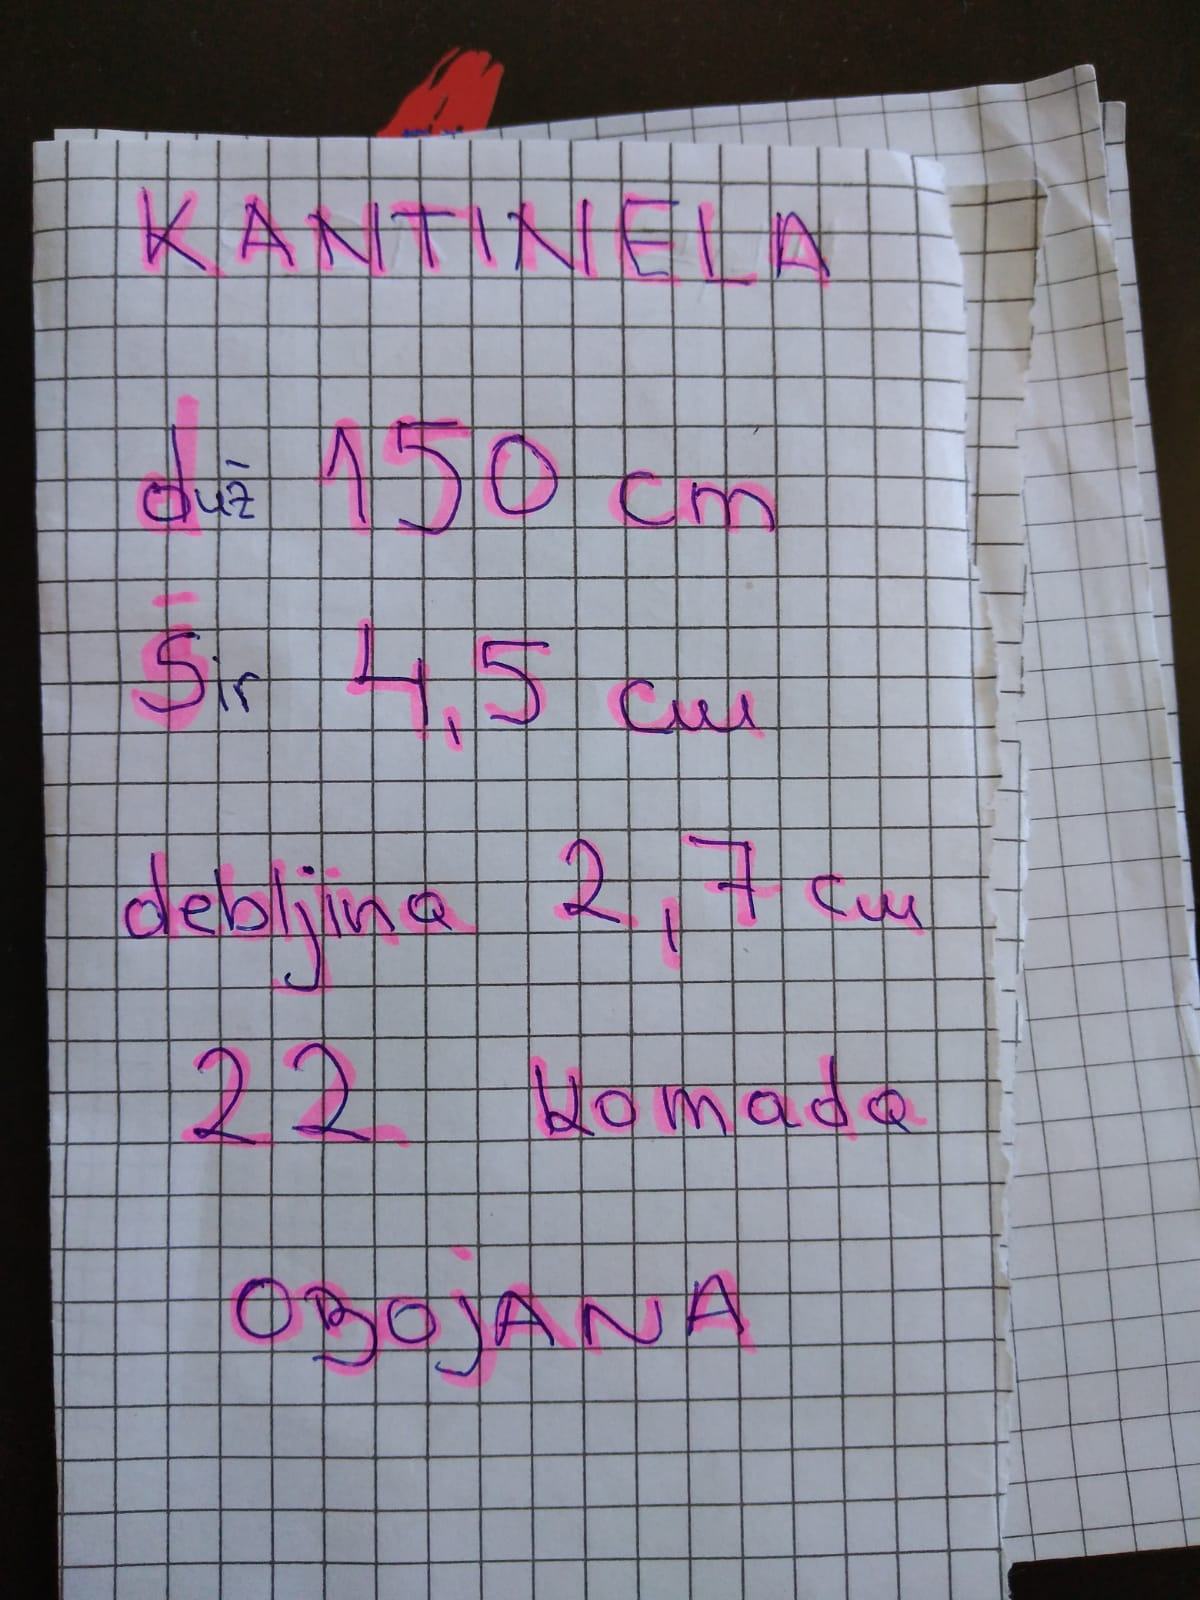 KANTINELA
duž 150 cm
Šir 4,5 cm
debljina 2,7 cm
22 komada
OBOjANA